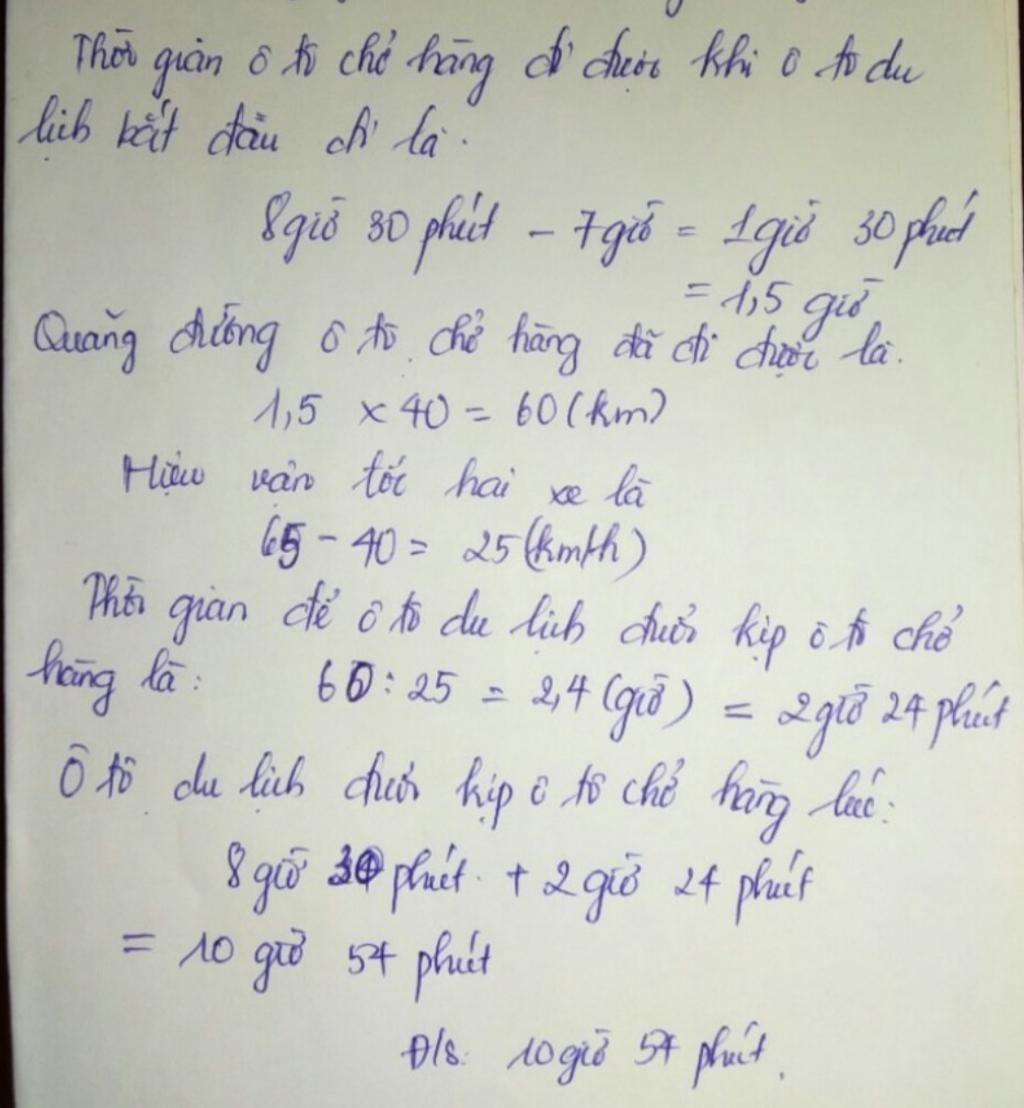 Thời gian ô tô chở hàng đi được khi ô tô du
lịch bắt đầu đi là.
8 giờ 30 phút - 7 giờ = 1 giờ 30 phút
= 1,5 giờ
Quãng đường ô tô chở hàng đã đi được là.
1,5 x 40 = 60 (km)
Hiệu vận tốc hai xe là
65 - 40 = 25 (km/h)
Thời gian để ô tô du lịch đuổi kịp ô tô chở
hàng là: 60 : 25 = 2,4 (giờ) = 2 giờ 24 phút
Ô tô du lịch đuổi kịp ô tô chở hàng lúc:
8 giờ 30 phút + 2 giờ 24 phút
= 10 giờ 54 phút
Đ/s: 10 giờ 54 phút.